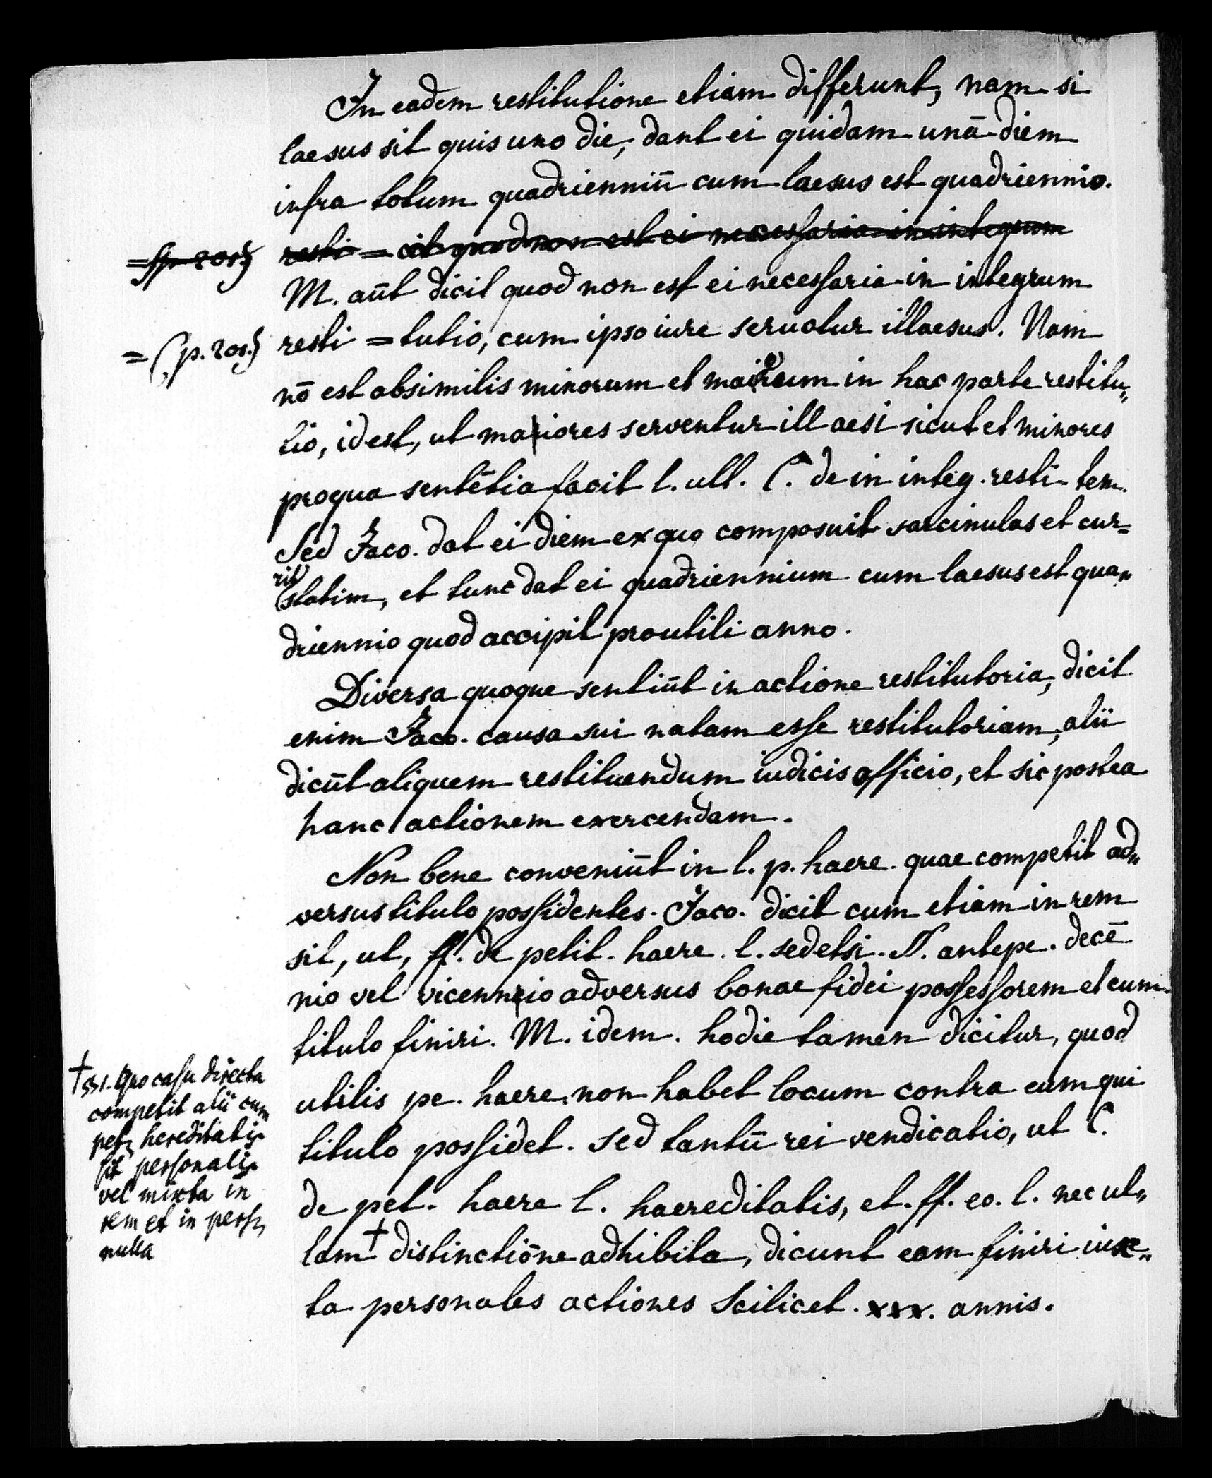 In eadem restitutione etiam differunt, nam si
laesus sit quis uno die, dant ei quidam unā diem
infra totum quadrienniū cum laesus est quadriennio.
resti = it quod non est ei necessaria in integrum
M. aūt dicit quod non est ei necessaria in integrum
= (p. 205.) resti = tutio, cum ipso iure servatur illaesus. Nam
nō est absimilis minorum et maiorum in hac parte restitu„
tio, id est, ut maiores serventur illaesi sicut et minores
pro qua sentētia facit l. ult. C. de in integ. resti. tem.
Sed Jaco. dat ei diem ex quo composuit sarcinulas et cur=
rit statim, et tunc dat ei quadriennium cum laesus est qua„
driennio quod accipit pro utili anno.
Diversa quoque sentiūt in actione restitutoria, dicit
enim Jaco. causa sui natam esse restitutoriam, alii
dicūt aliquem restituendum iudicis officio, et sic postea
hanc actionem exercendam.
Non bene conveniūt in l. p. haere. quae competit ad„
versus titulo possidentes. Jaco. dicit cum etiam in rem
sit, ut, ff. de petit. haere. l. sed etsi. §. antepe. decē
nio vel vicennio adversus bonae fidei possessorem et cum
titulo finiri. M. idem. hodie tamen dicitur, quod
utilis pe. haere. non habet locum contra eum qui
titulo possidet. sed tantū rei vendicatio, ut C.
de pet. haere l. haereditatis, et. ff. eo. l. nec ul„
lam † distinctiōne adhibita, dicunt eam finiri iux„
ta personales actiones Scilicet. xxx. annis.
† ssi. quo casu directa
competit alii cum
pet. hereditatis
sit personalis
vel mixta in
rem et in pers.
nulla